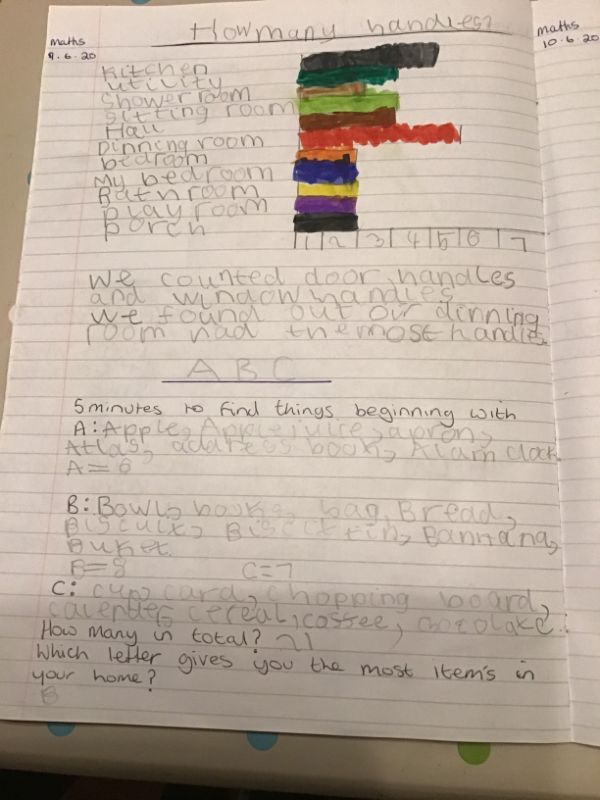 How many handles?
maths
9.6.20
maths
10.6.20
Kitchen
utility
Shower room
Sitting room
Hall
Dinning room
bedroom
My bedroom
Bathroom
play room
porch
1 2 3 4 5 6 7
We counted door handles
and window handles
we found out our dinning
room had the most handles.
A B C
5 minutes to find things beginning with
A: Apple, Apple juice, apron,
Atlas, address book, Alarm clock
A = 6
B: Bowl, books, bag, Bread,
Biscuit, Biscit tin, Bannana,
Buket.
B = 8 C = 7
C: cup, card, chopping board,
calender, cereal, coffee, chocolake.
How many in total? 21
Which letter gives you the most item's in
your home?
B